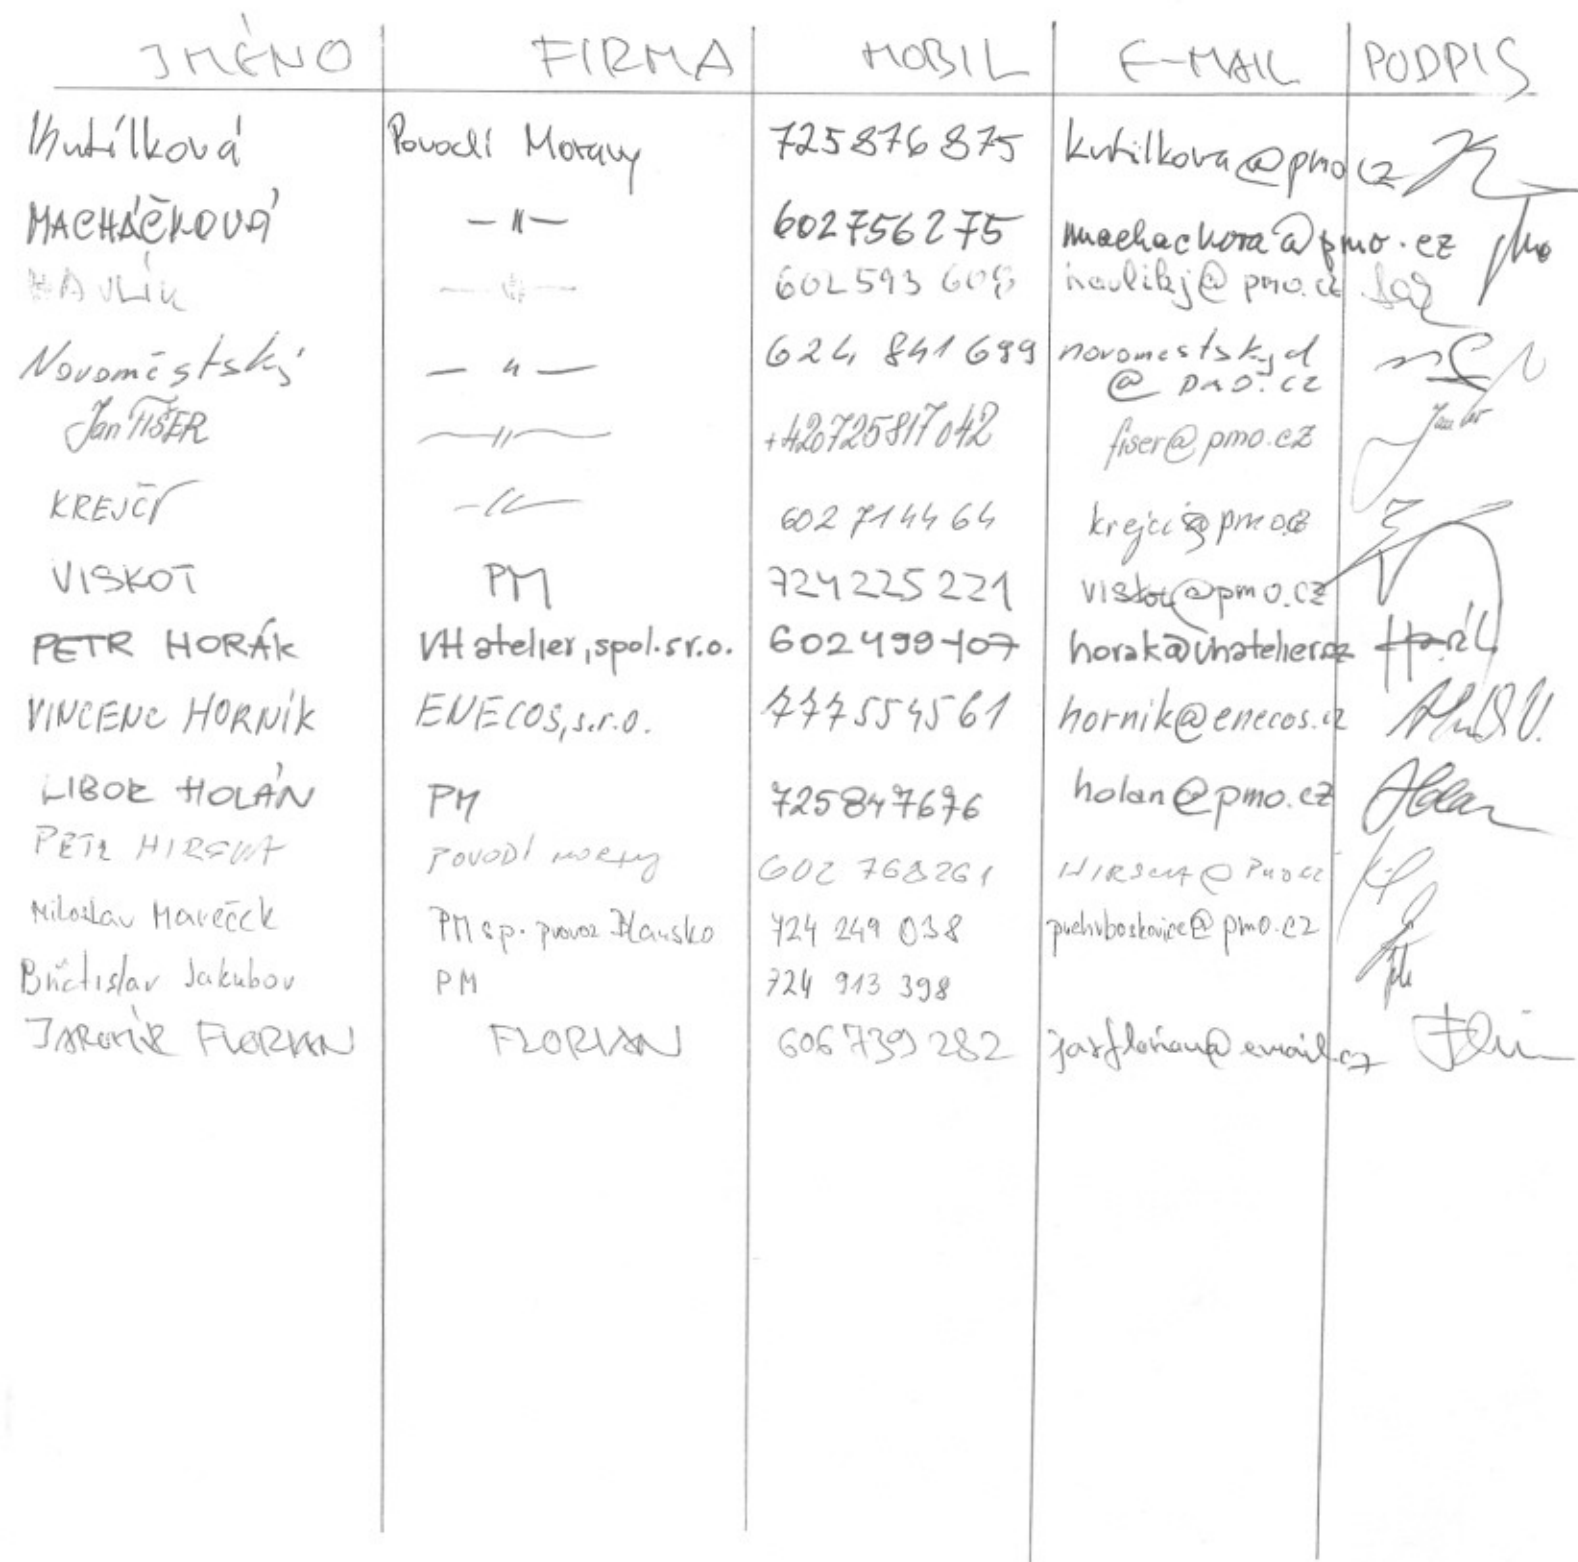 JMÉNO FIRMA MOBIL E-MAIL PODPIS
Kutílková Povodí Moravy 725876875 kutilkova@pmo.cz
MACHÁČKOVÁ -"- 602756275 machackova@pmo.cz
HAVLÍK -"- 602593608 havlikj@pmo.cz
Novoměstský -"- novomestskyd
@pmo.cz
Jan FIŠER -"- +420725817042 fiser@pmo.cz
KREJČÍ -"- 602714464 @pmo.cz
VISKOT PM 724225221 viskot@pmo.cz
PETR HORÁK VH atelier, spol. s r.o. 602499407 horak@vhatelier.cz Horák
VINCENC HORNÍK ENECOS, s.r.o. 777554561 hornik@enecos.cz
LIBOR HOLÁN PM 725847676 holan@pmo.cz Holan
PETR POVODÍ MORAVY 602 768261
Miloslav Mareček PM s.p. provoz Blansko 724 249 038
Břetislav Jakubov PM 724 913 398
JAROMÍR FLORIAN FLORIAN 606 739 282 @email.cz